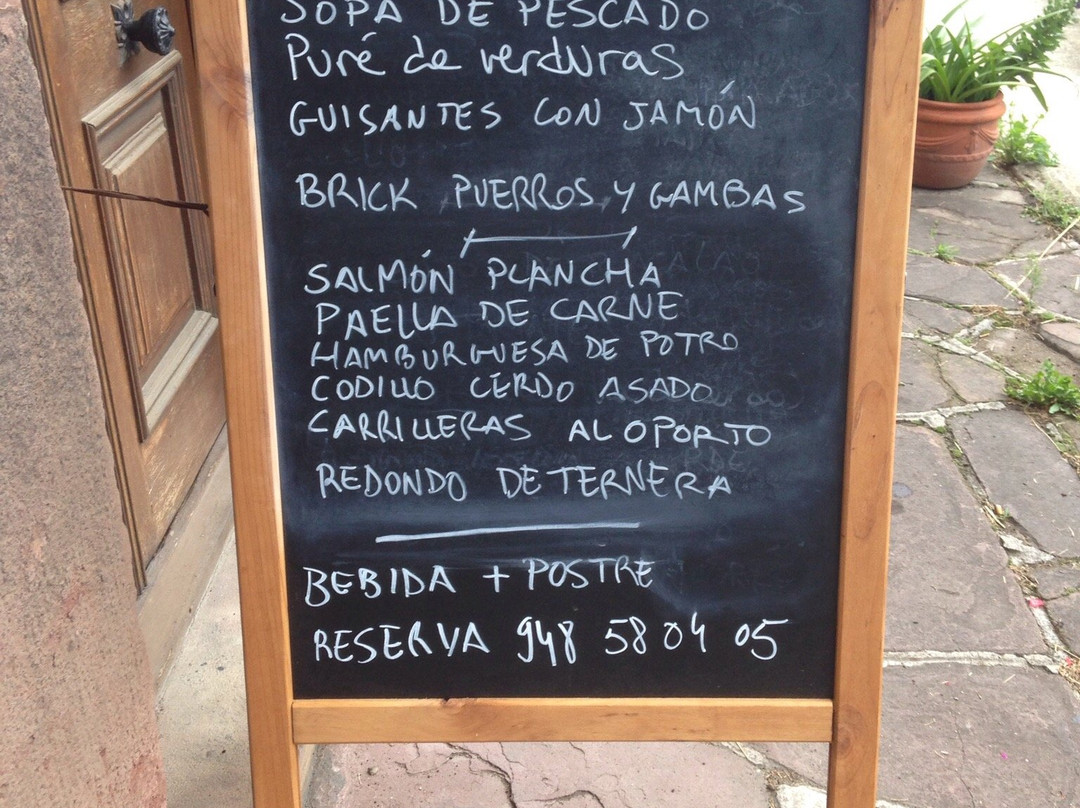 SOPA DE PESCADO
Puré de verduras
GUISANTES CON JAMÓN
BRICK PUERROS Y GAMBAS
SALMÓN PLANCHA
PAELLA DE CARNE
HAMBURGUESA DE POTRO
CODILLO CERDO ASADO
CARRILLERAS AL OPORTO
REDONDO DE TERNERA
BEBIDA + POSTRE
RESERVA 948 58 04 05